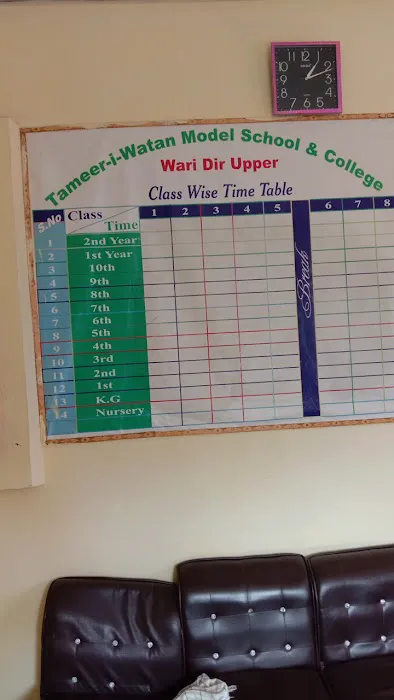 11 12 1
10 2
9 3
8 4
7 6 5
Tameer-i-Watan Model School & College
Wari Dir Upper
Class Wise Time Table
S.No Class Time 1 2 3 4 5 Break 6 7 8
1 2nd Year
2 1st Year
3 10th
4 9th
5 8th
6 7th
7 6th
8 5th
9 4th
10 3rd
11 2nd
12 1st
13 K.G
14 Nursery